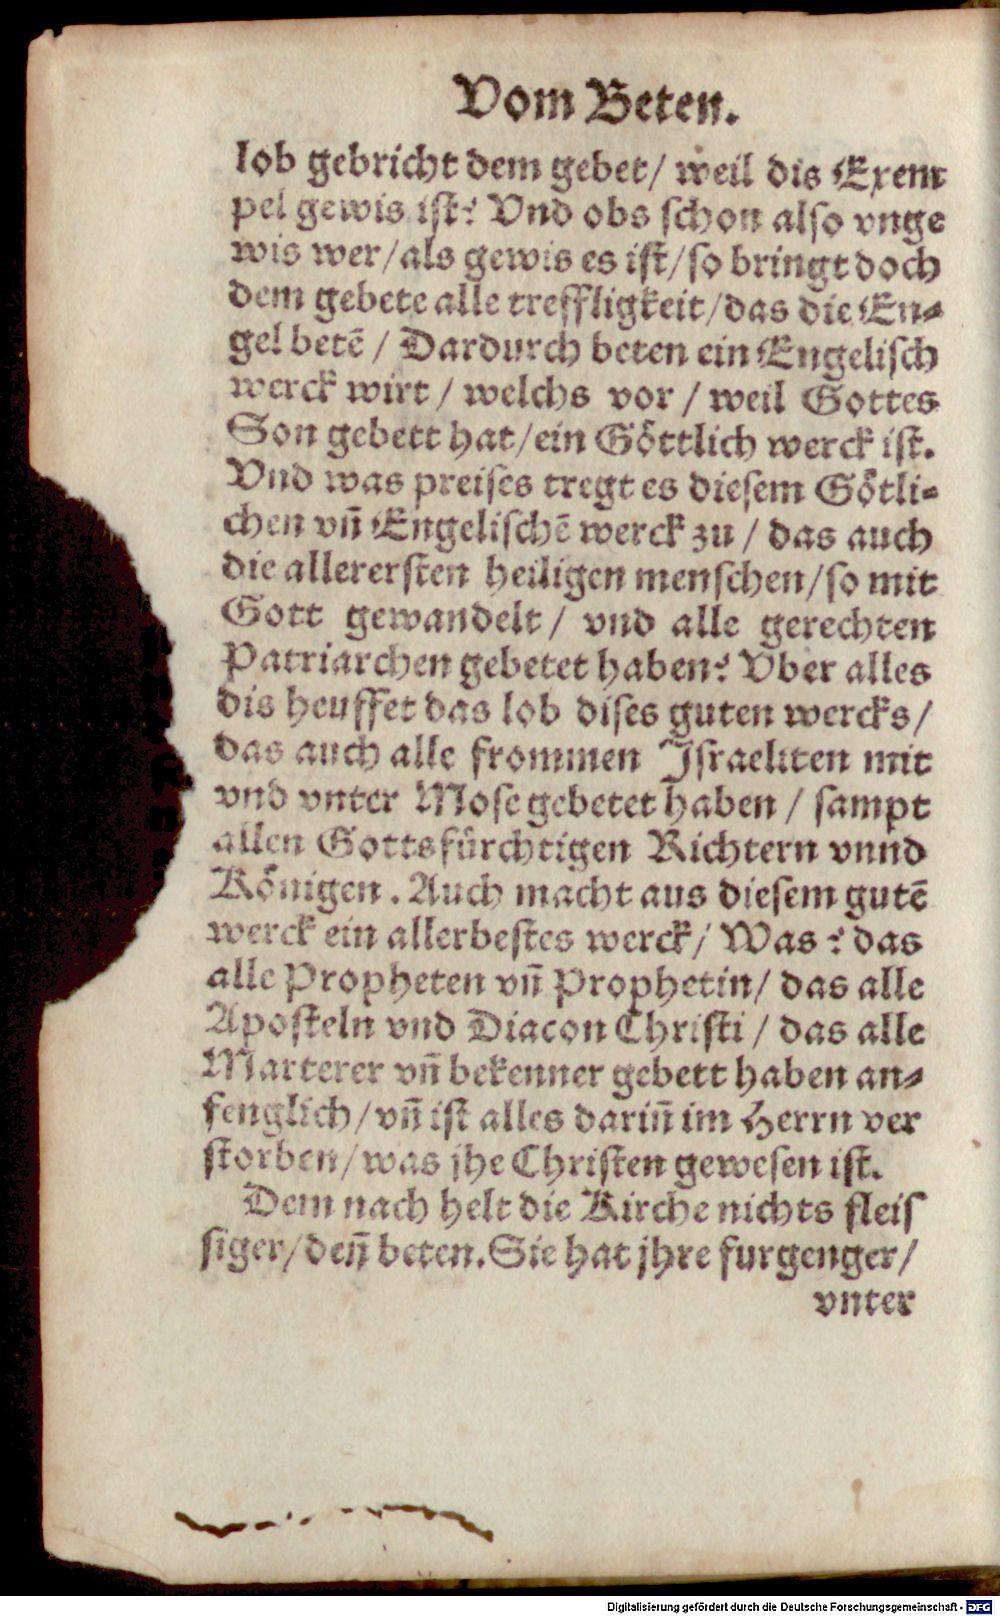 Vom Beten.
lob gebricht dem gebet/ weil dis Exem
pel gewis ist? Vnd obs schon also vnge
wis wer/als gewis es ist/so bringt doch
dem gebete alle treffligkeit/das die En⸗
gel betē / Dardurch beten ein Engelisch
werck wirt / welchs vor / weil Gottes
Son gebett hat/ein Göttlich werck ist.
Vnd was preises tregt es diesem Götli⸗
chen vñ Engelischē werck zu / das auch
die allerersten heiligen menschen/so mit
Gott gewandelt / vnd alle gerechten
Patriarchen gebetet haben? Vber alles
dis heuffet das lob dises guten wercks/
das auch alle frommen Israeliten mit
vnd vnter Mose gebetet haben / sampt
allen Gottsfürchtigen Richtern vnnd
Königen. Auch macht aus diesem gutē
werck ein allerbestes werck/ Was? das
alle Propheten vñ Prophetin/ das alle
Aposteln vnd Diacon Christi / das alle
Marterer vñ bekenner gebett haben an⸗
fenglich/vñ ist alles dariñ im Herrn ver
storben/was jhe Christen gewesen ist.
Dem nach helt die Kirche nichts fleis
siger/deñ beten.Sie hat jhre furgenger/
vnter
Digitalisierung gefördert durch die Deutsche Forschungsgemeinschaft - DFG